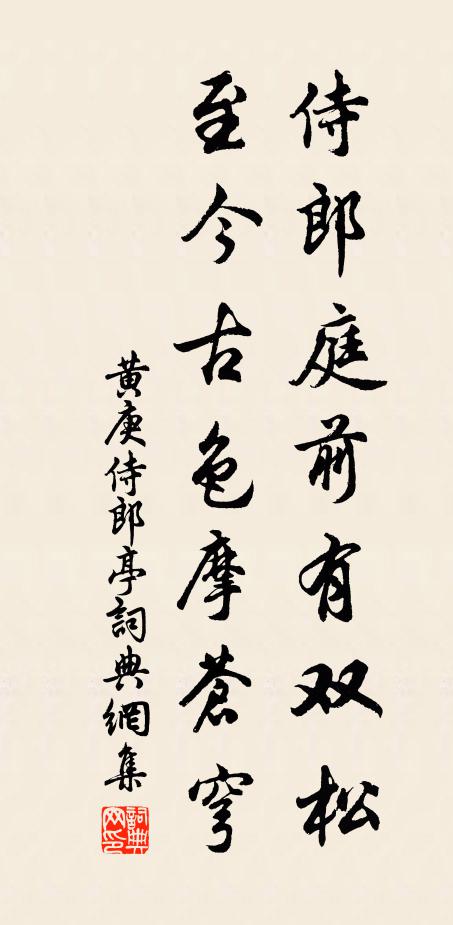 侍郎庭前有双松
至今古色摩蒼穹
黄庚侍郎亭詞典網集
詞典網印